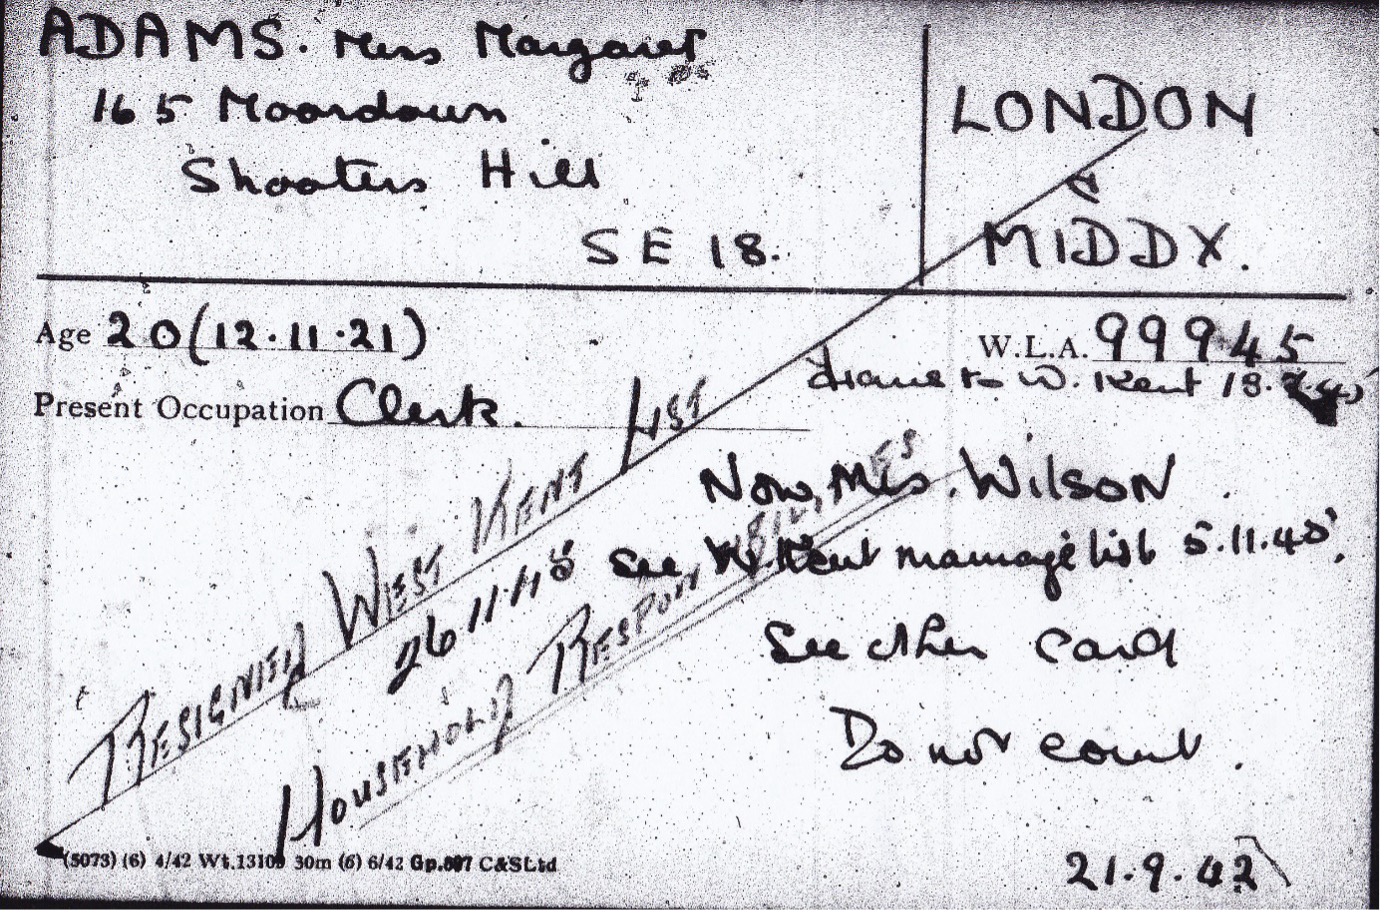 ADAMS. Miss Margaret
165 Moordown
Shooters Hill
SE 18.
LONDON
&
MIDDX.
Age 20 (12.11.21)
W.L.A. 99945
to W. Kent 18.
Present Occupation Clerk.
Now Mrs. Wilson
See W. Kent marriage list 5.11.45.
See other card
Do not count.
RESIGNED WEST KENT LIST
26.11.45
HOUSEHOLD RESPONSIBILITIES
(5073) (6) 4/42 Wt.13109 30m (6) 6/42 Gp.697 C&SLtd
21.9.42